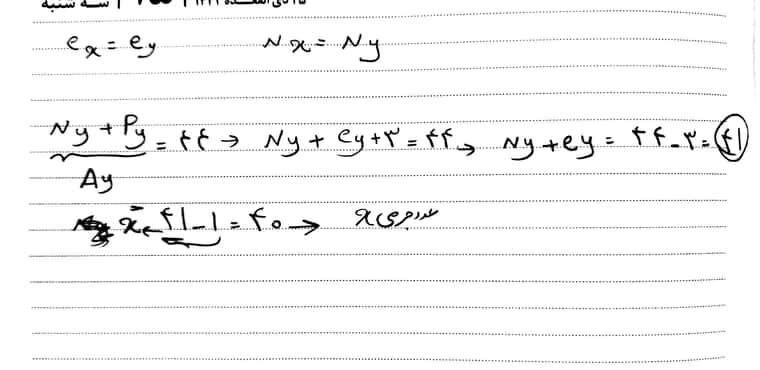 سه شنبه
eₓ = e_y    Nₓ = N_y
N_y + P_y = ۴۴ → N_y + e_y + ۳ = ۴۴ → N_y + e_y = ۴۴ - ۳ = ۴۱
A_y
x⁻ ← ۴۱ - ۱ = ۴۰ → عدد جرمی x